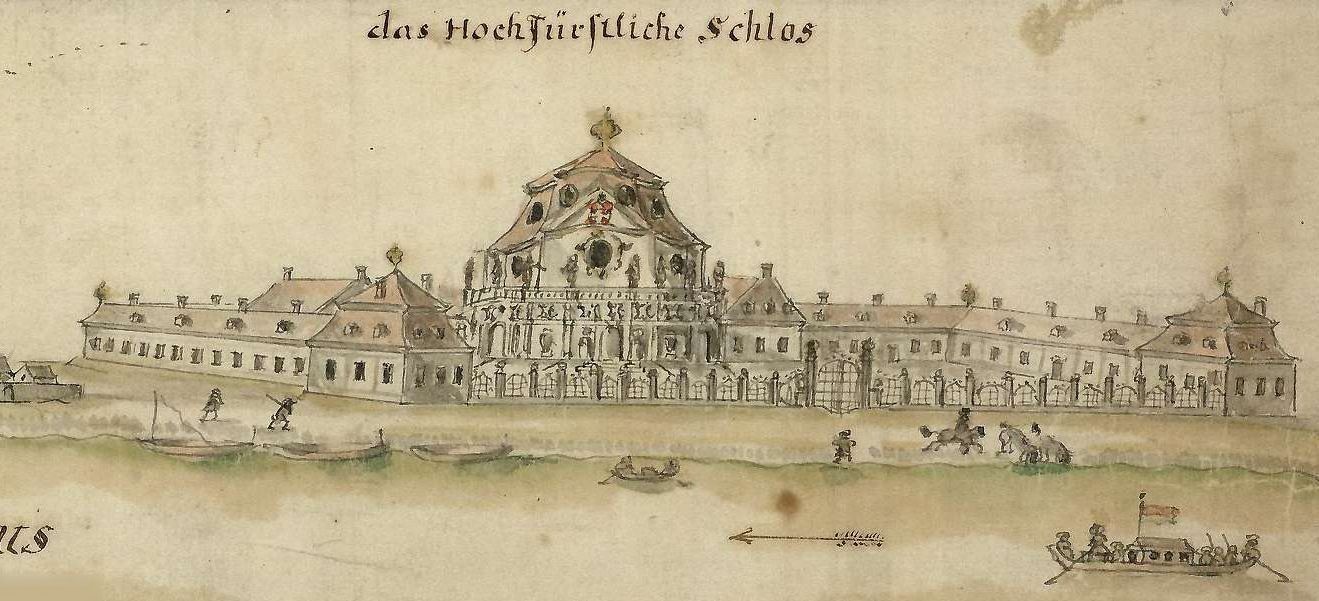 das Hochfürstliche Schlos